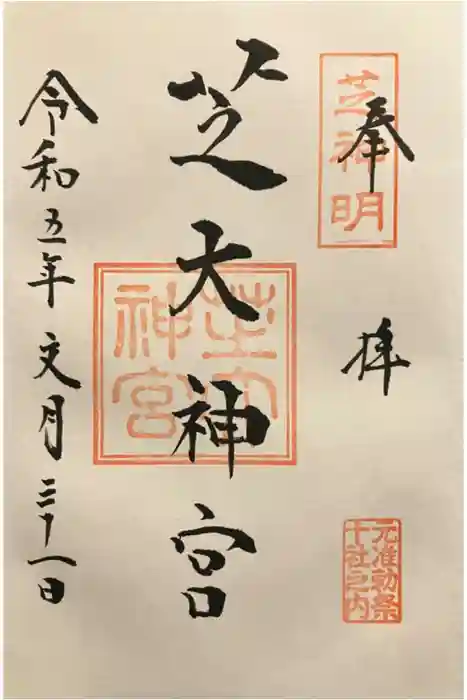 芝神明
奉拝
元准勅祭
十社之内
芝大神宮
芝大
神宮
令和五年文月三十一日